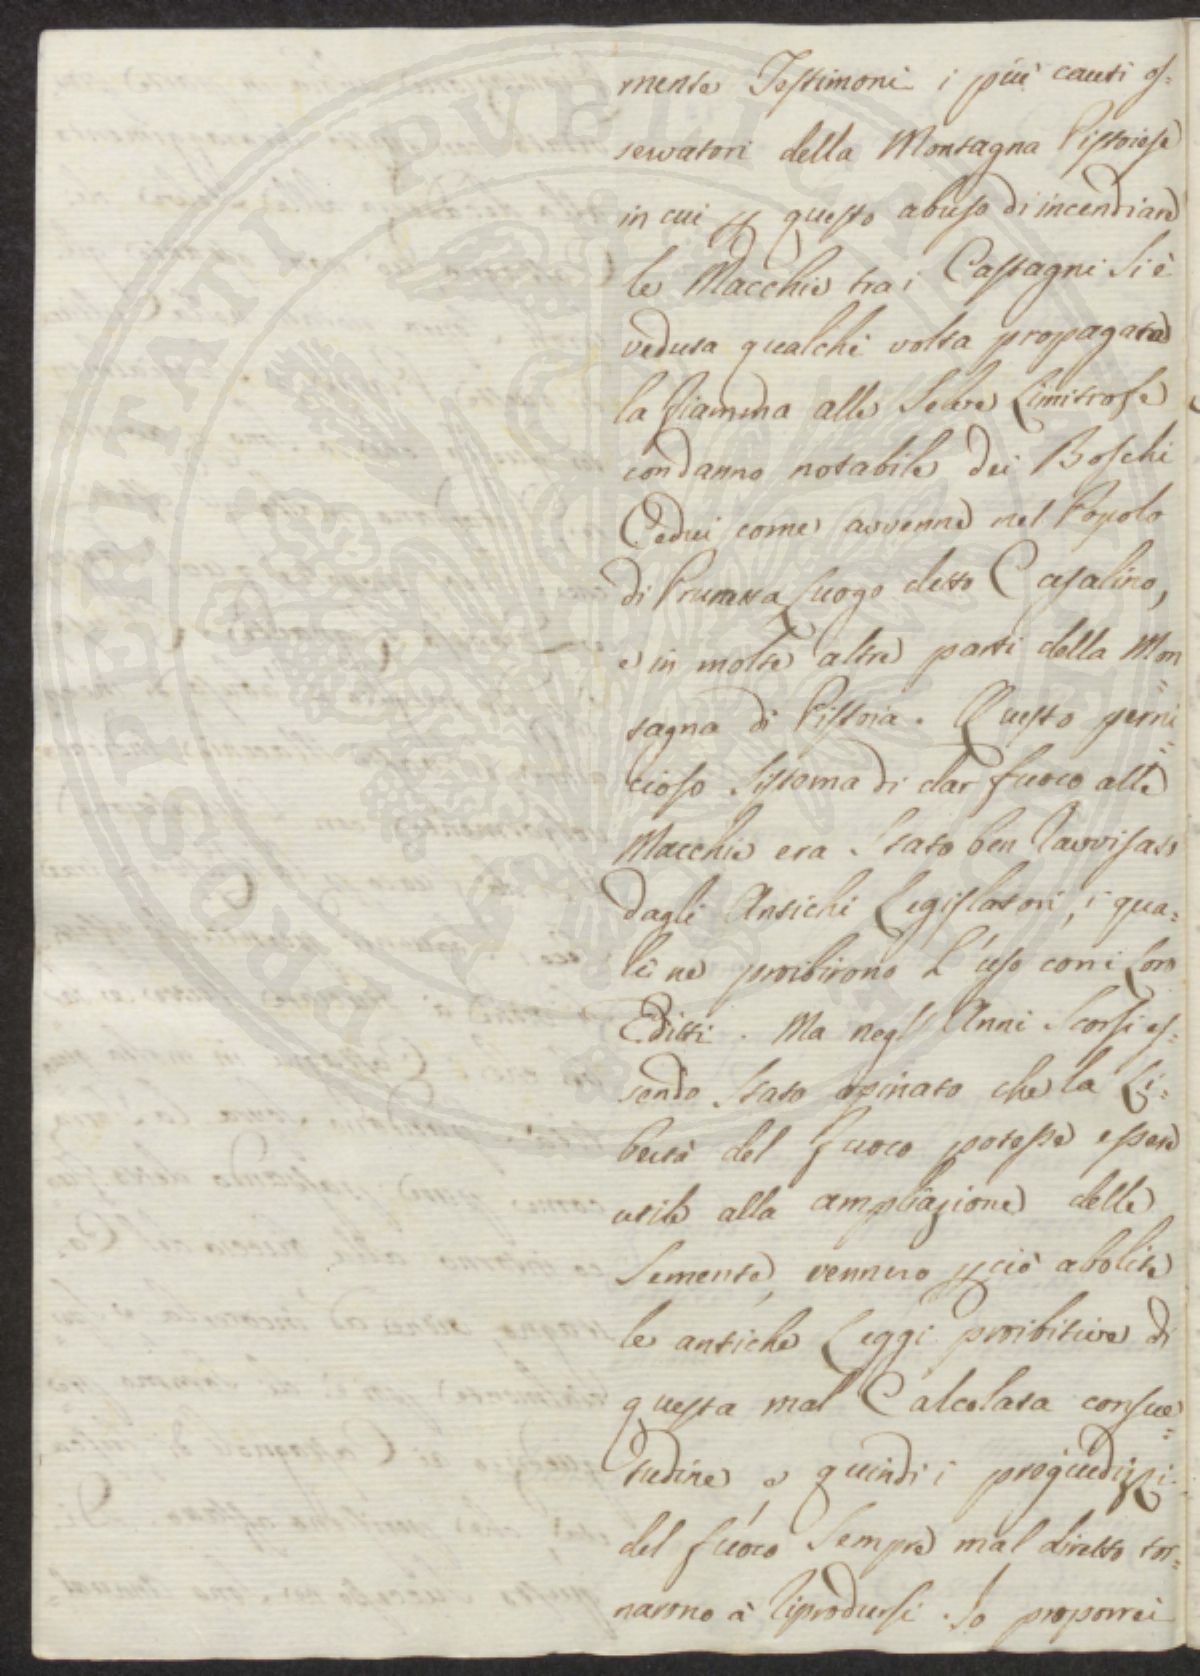 mente Testimoni i più cauti os=
servatori della Montagna Pistoiese
in cui p questo abuso di incendiare
le Macchie tra i Castagni si è
veduta qualche volta propagata
la fiamma alle Selve Limitrofe
con danno notabile dei Boschi
Cedui come avvenne nel Popolo
di Prunetta Luogo detto Casalino,
e in molte altre parti della Mon=
tagna di Pistoia. Questo perni=
cioso Sistema di dar fuoco alle
Macchie era Stato ben Ravvisato
dagli Antichi Legislatori, i qua=
li ne proibirono L'uso con i Loro
Editti. Ma negl'Anni Scorsi es=
sendo Stato opinato che la Li=
bertà del fuoco potesse essere
utile alla ampliazione delle
Semente, vennero pciò abolite
le antiche Leggi proibitive di
questa mal Calcolata consue=
tudine e quindi i pregiudizzi
del fuoco Sempre mal diretto tor=
narono à Riprodursi. Io proporrei
PROSPERITATI PUBLICAE AUGENDAE